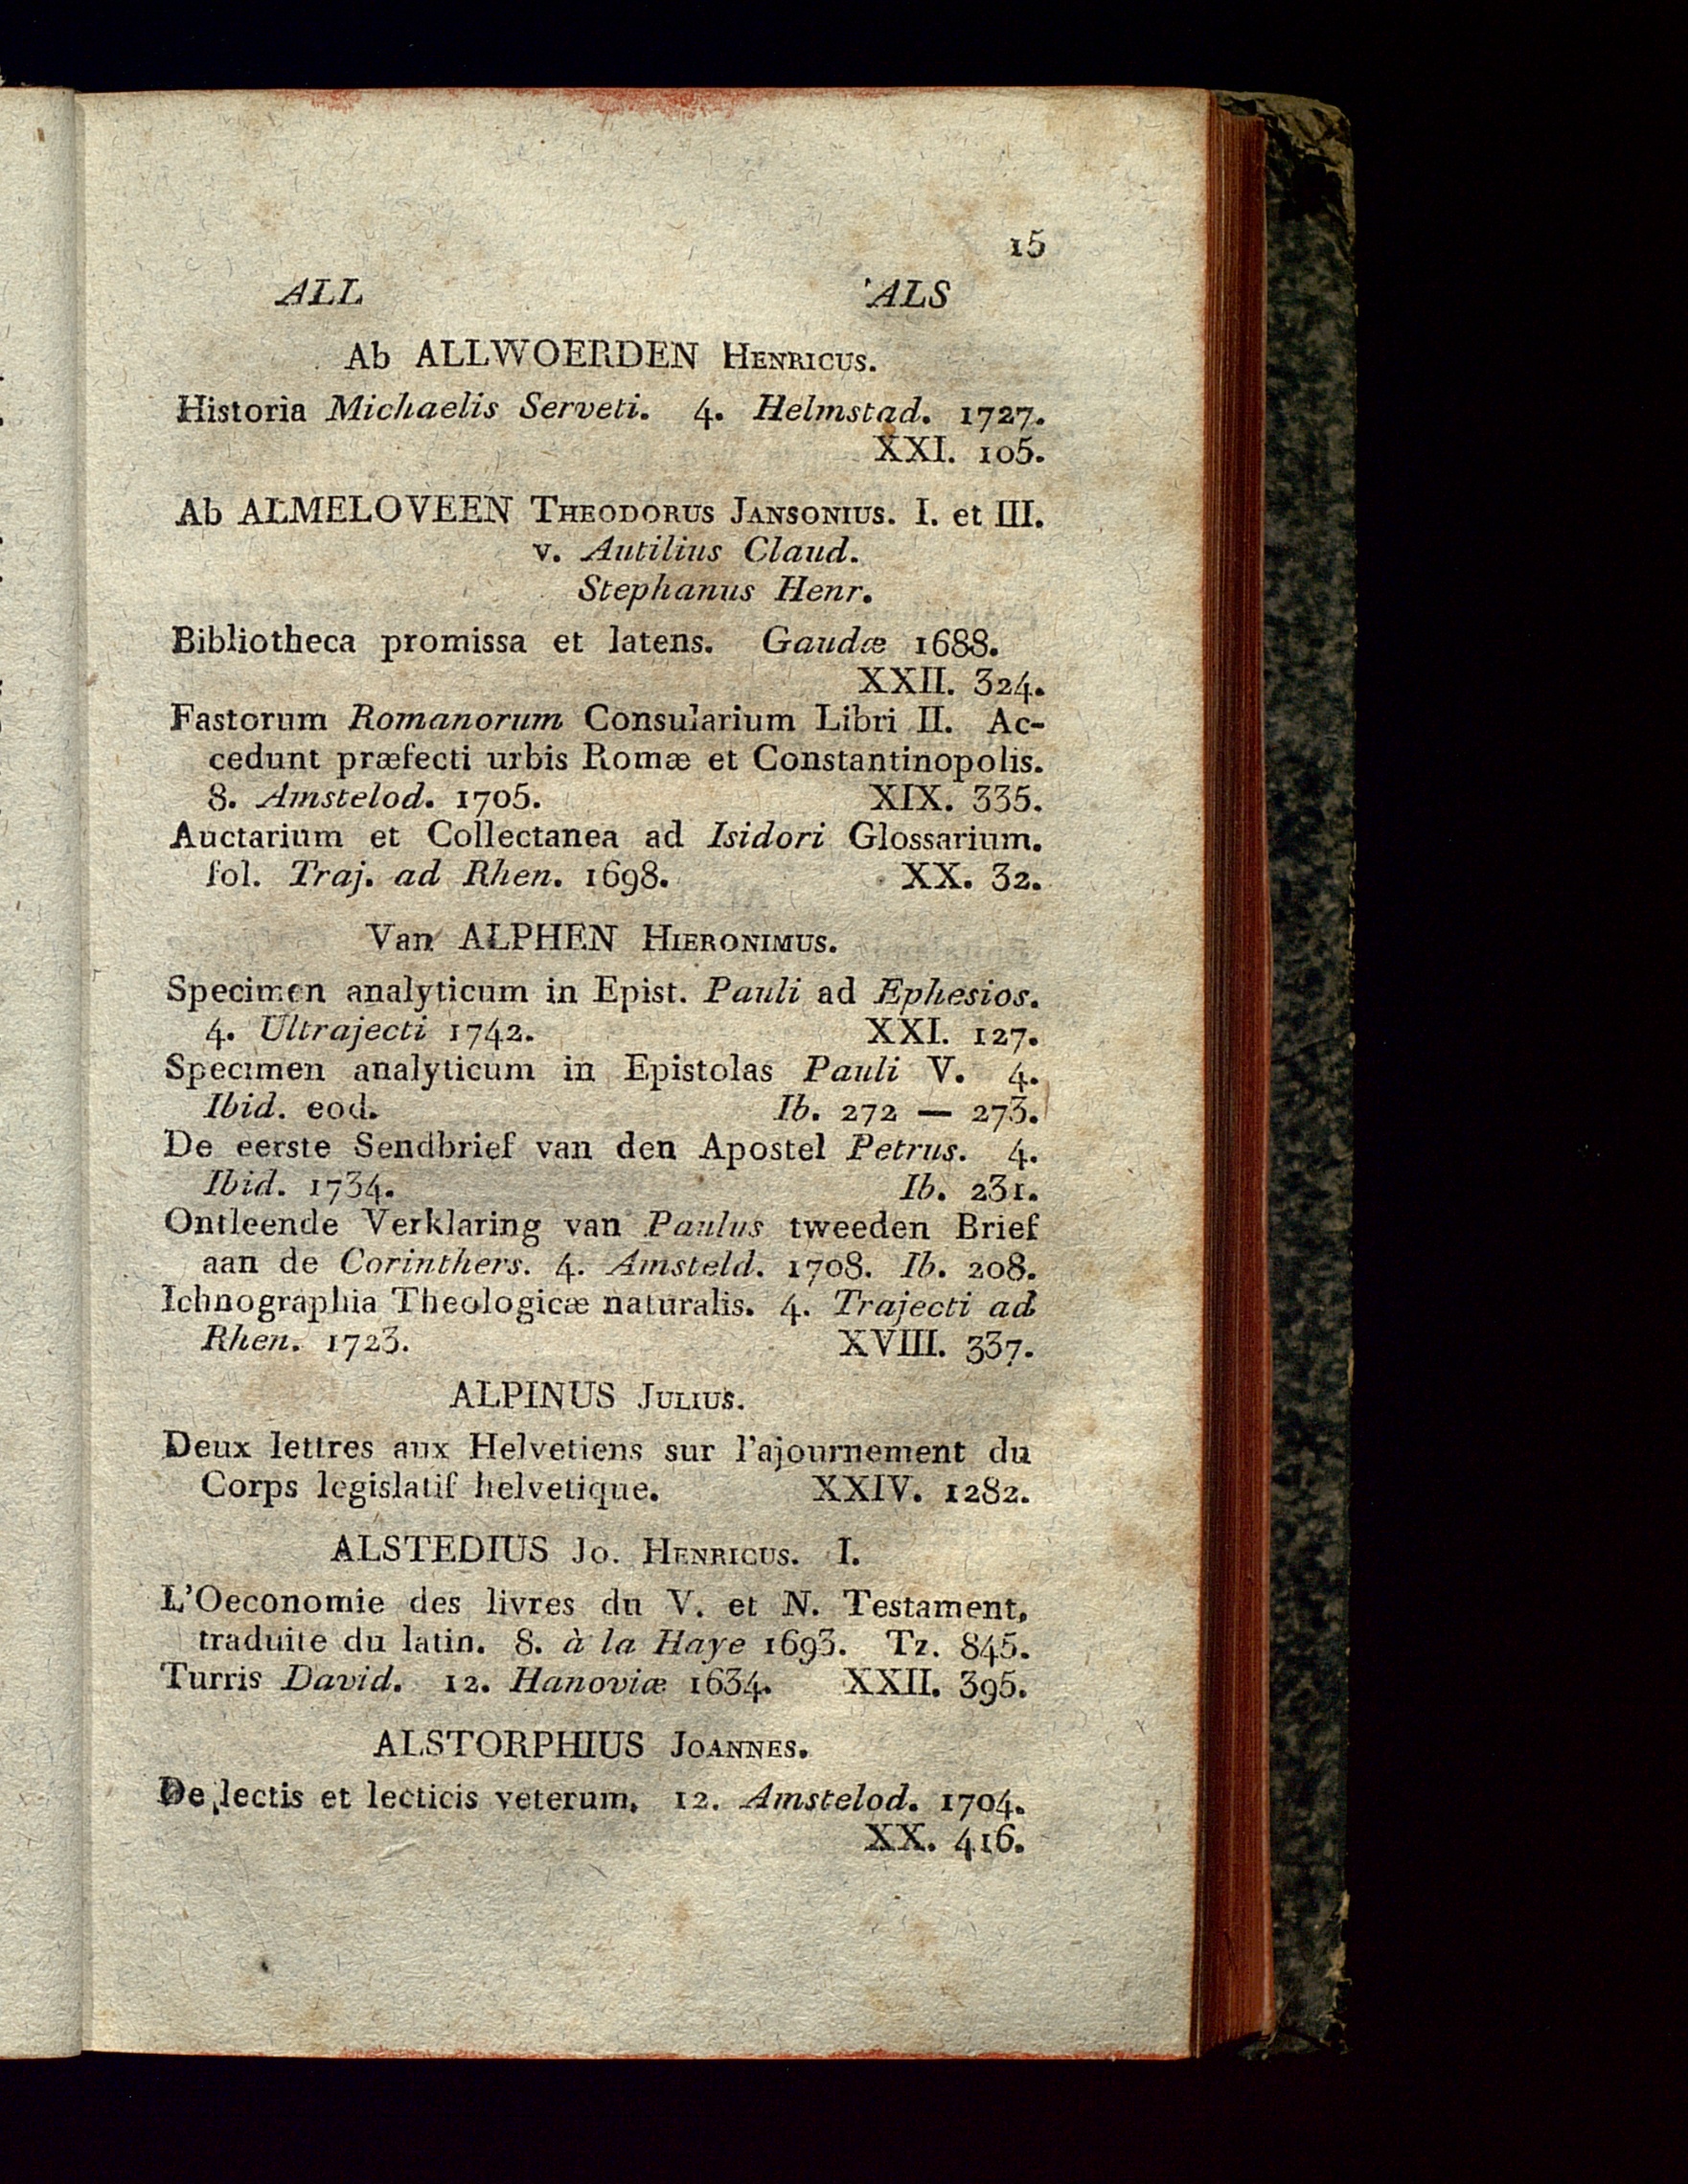 15
ALL ALS
Ab ALLWOERDEN HENRICUS.
Historia Michaelis Serveti. 4. Helmstad. 1727.
XXI. 105.
Ab ALMELOVEEN THEODORUS JANSONIUS. I. et III.
v. Autilius Claud.
Stephanus Henr.
Bibliotheca promissa et latens. Gaudæ 1688.
XXII. 324.
Fastorum Romanorum Consularium Libri II. Ac-
cedunt præfecti urbis Romæ et Constantinopolis.
8. Amstelod. 1705. XIX. 335.
Auctarium et Collectanea ad Isidori Glossarium.
fol. Traj. ad Rhen. 1698. XX. 32.
Van ALPHEN HIERONIMUS.
Specimen analyticum in Epist. Pauli ad Ephesios.
4. Ultrajecti 1742. XXI. 127.
Specimen analyticum in Epistolas Pauli V. 4.
Ibid. eod. Ib. 272 — 273.
De eerste Sendbrief van den Apostel Petrus. 4.
Ibid. 1734. Ib. 231.
Ontleende Verklaring van Paulus tweeden Brief
aan de Corinthers. 4. Amsteld. 1708. Ib. 208.
Ichnographia Theologicæ naturalis. 4. Trajecti ad
Rhen. 1723. XVIII. 337.
ALPINUS JULIUS.
Deux lettres aux Helvetiens sur l'ajournement du
Corps legislatif helvetique. XXIV. 1282.
ALSTEDIUS JO. HENRICUS. I.
L'Oeconomie des livres du V. et N. Testament,
traduite du latin. 8. à la Haye 1693. Tz. 845.
Turris David. 12. Hanoviæ 1634. XXII. 395.
ALSTORPHIUS JOANNES.
De lectis et lecticis veterum. 12. Amstelod. 1704.
XX. 416.